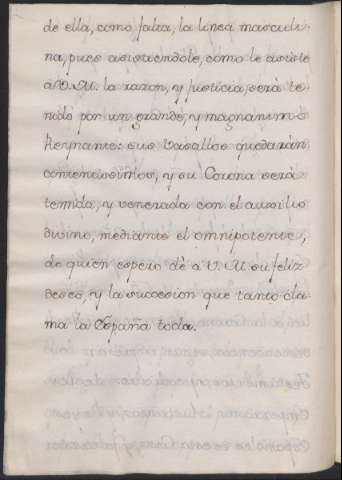 de ella, como falta, la linea masculi-
na, pues asistiendole, como le asiste
à V. M. la razon, y justicia, serà te-
nido por un grande, y magnanimo
Reynante: sus Vasallos quedaràn
contentissimos, y su Corona serà
temida, y venerada con el auxilio
divino, mediante el omnipotente,
de quien espero dè a V. M. su feliz
deseo, y la succesion que tanto cla-
ma la España toda.